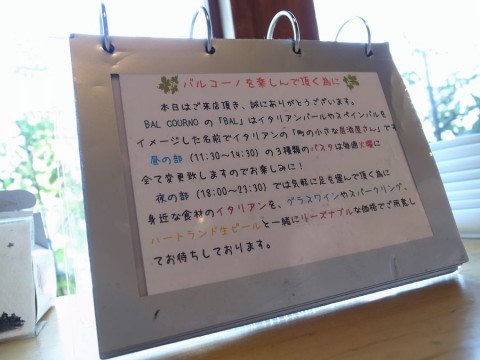 バルコーノを楽しんで頂く為に
本日はご来店頂き、誠にありがとうございます。
BAL COURNO の「BAL」はイタリアンバールやスペインバルを
イメージした名前でイタリアンの「町の小さな居酒屋さん」です
昼の部 (11:30〜14:30) の3種類のパスタは毎週火曜に
全て変更致しますのでお楽しみに!
夜の部 (18:00〜23:30) では気軽に足を運んで頂く為に
身近な食材のイタリアンを、グラスワインやスパークリング、
ハートランド生ビールと一緒にリーズナブルな価格でご用意し
てお待ちしております。